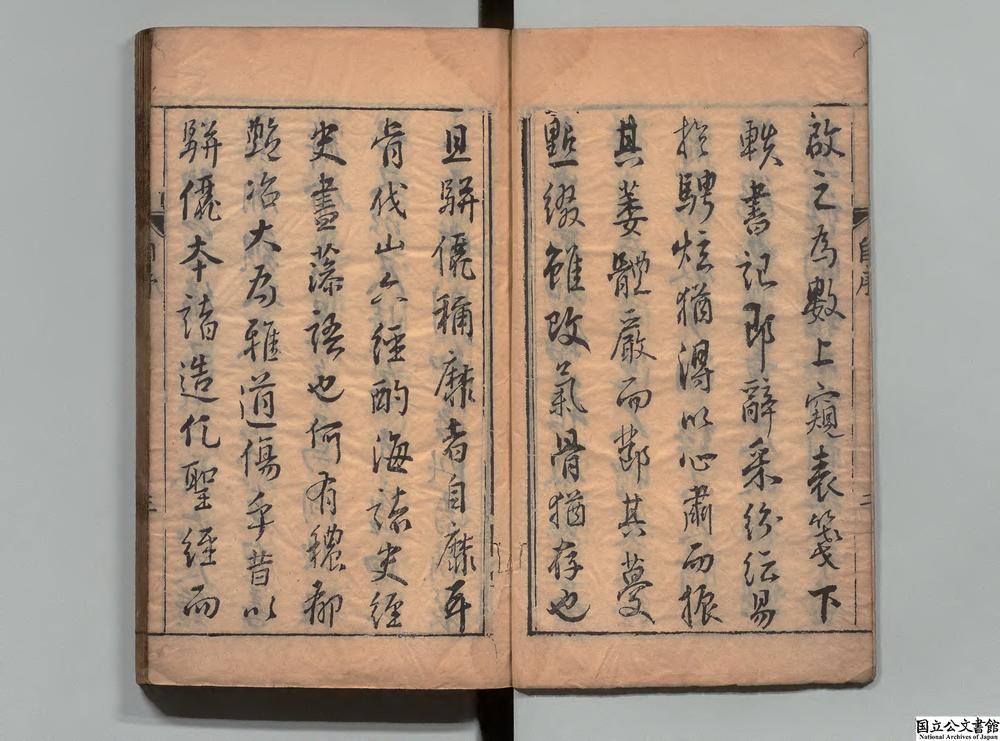 啟之為數上窺表箋下
軼書記即辭采紛紜易
於騁炫猶得以心肅而振
其萎體嚴而鄣其蔓
點綴雖改氣骨猶存也
且駢儷稱靡者自靡耳
胥伐山六經酌海諸史經
史盡藻語也何有穠郁
豔冶大為雅道傷乎昔以
駢儷本諸造化聖經而
自序
二
自序
三
国立公文書館
National Archives of Japan